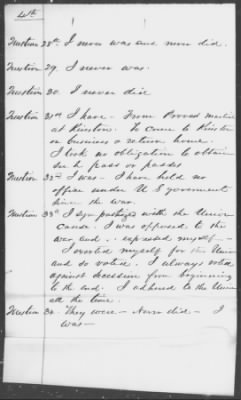 4th
Question 28th I never was and never did.
Question 29. I never was.
Question 30. I never did
Question 31st I have - From Provost Marshal
at Kinston. To come to Kinston
on business & return home.
I took no obligation to obtain
such pass or passes
Question 32nd I was - I have held no
office under U S government
since the war.
Question 33d I sympathized with the Union
cause. I was opposed to the
war and expressed myself -
I exerted myself for the Union
and so voted. I always voted
against secession from beginning
to the end. I adhered to the Union
all the time.
Question 34. They were - Never did - I
was -